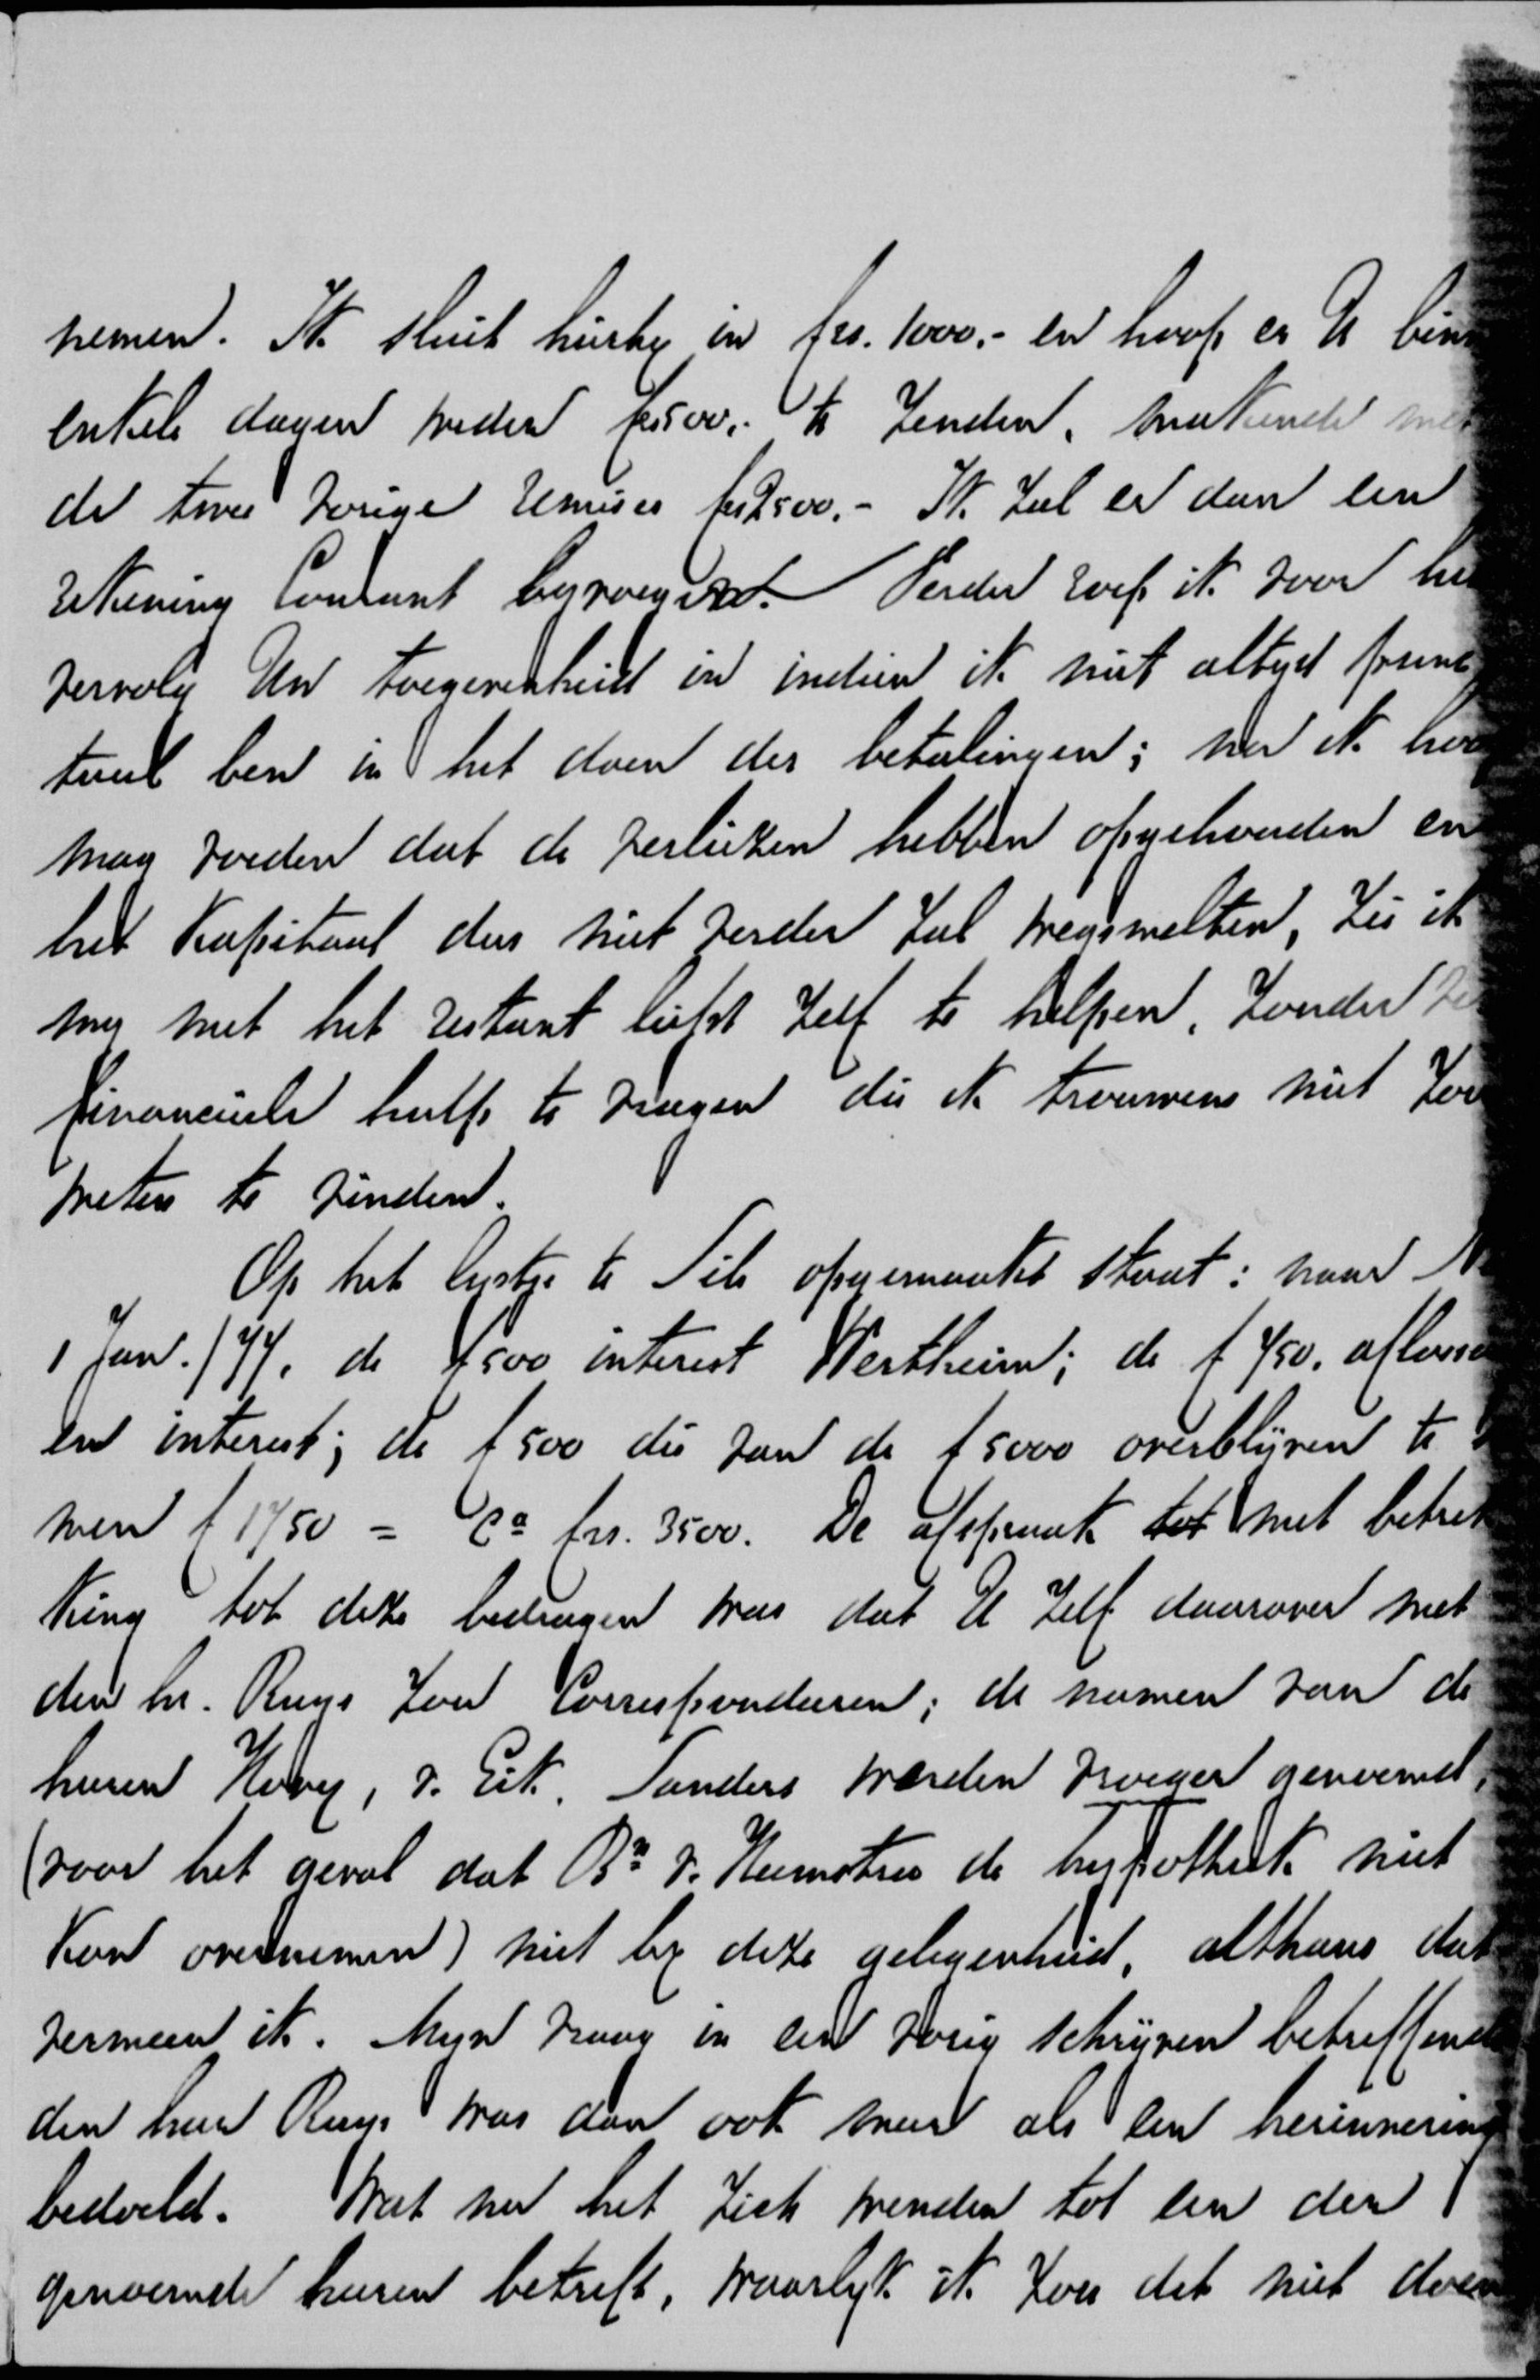 nemen. Ik sluit hierby in frs. 1000.- en hoop er U binn
enkele dagen weder frs500.- te zenden, makende met
de twee vorige remises frs2500.- Ik zal er dan een
rekening Courant byvoegen. Verder roep ik voor het
vervolg Uw toegevenheid in indien ik niet altyd punc
tueel ben in het doen der betalingen; nu ik hoo
mag voeden dat de verliezen hebben opgehouden en
het Kapitaal dus niet verder zal wegsmelten, zie ik
my met het restant liefst zelf te helpen, zonder
financieele hulp te vragen die ik trouwens niet zou
weten te vinden.
Op het lystje te Sils opgemaakt staat: naar
1 Jan./77. de f500 interest Wertheim; de f 750. aflossi
en interest; de f 500 die van de f 5000 overblijven te
men f 1750 = Ca frs. 3500. De afspraak tot met betrek
king tot deze bedragen was dat U zelf daarover met
den hr. Ruys zou Correspondeeren; de namen van de
heeren Hovy, v. Eik, Sanders werden vroeger genoemd,
(voor het geval dat Bn v. Heemstra de hypotheek niet
kon overnemen) niet by deze gelegenheid, althans dat
vermeen ik. Myn vraag in een vorig schrijven betreffende
den heer Ruys was dan ook meer als een herinnering
bedoeld. Wat nu het zich wenden tot een der
genoemde heeren betreft, waarlyk ik zou dat niet doen